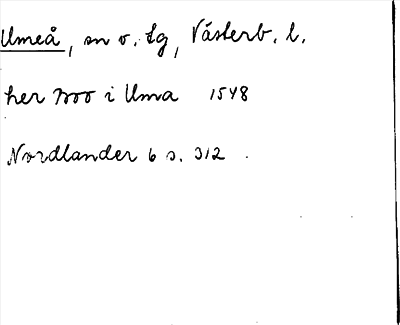 Umeå, sn o. lg, Västerb. l.
her moo i Uma 1548
Nordlander 6 s. 312.